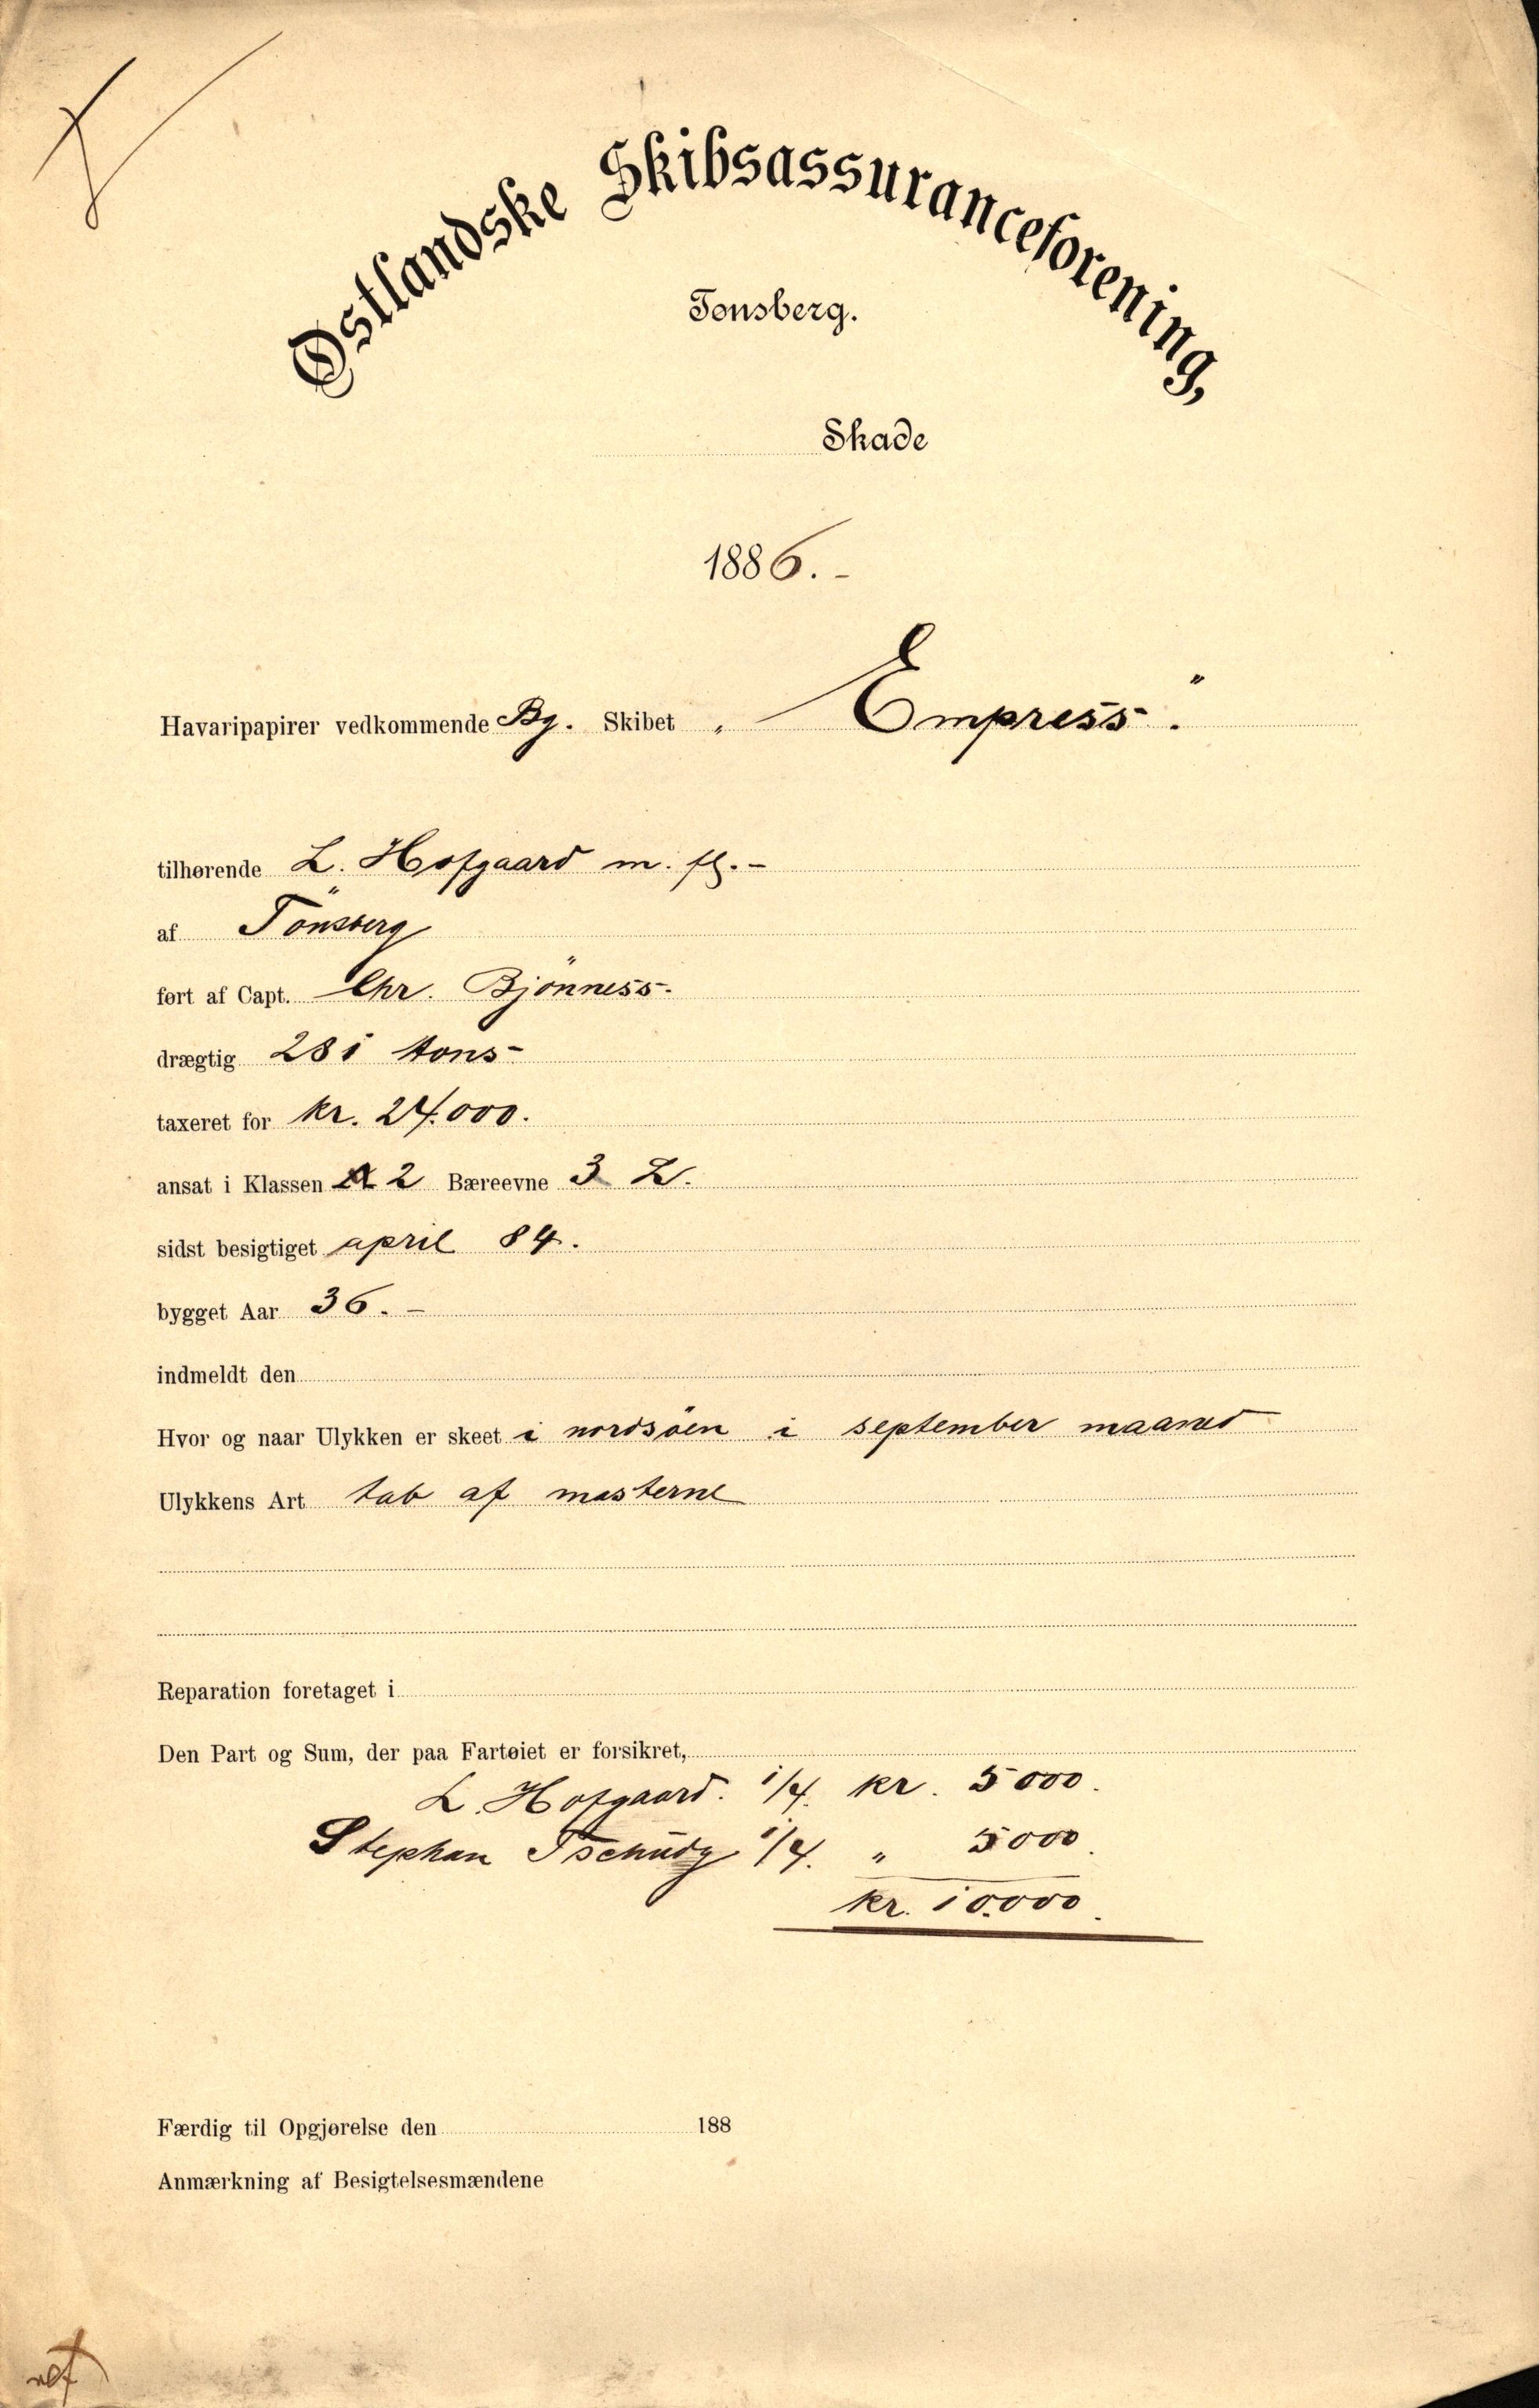 Østlandske Skibsassuranceforening,
Tønsberg.
Skade
1886. -
Havaripapirer vedkommende Bg. Skibet „Empress".
tilhørende L. Hofgaard m. fl. -
af Tönsberg
ført af Capt. Chr. Bjönness.
drægtig 281 tons
taxeret for kr. 24.000.
ansat i Klassen A 2 Bæreevne 3 L.
sidst besigtiget april 84.
bygget Aar 36. -
indmeldt den
Hvor og naar Ulykken er skeet i nordsöen i september maaned
Ulykkens Art tab af masterne
Reparation foretaget i
Den Part og Sum, der paa Fartøiet er forsikret,
L. Hofgaard. 1/4. kr. 5000.
Stephan Tschudy 1/4. „ 5000.
kr. 10.000.
Færdig til Opgjørelse den 188
Anmærkning af Besigtelsesmændene